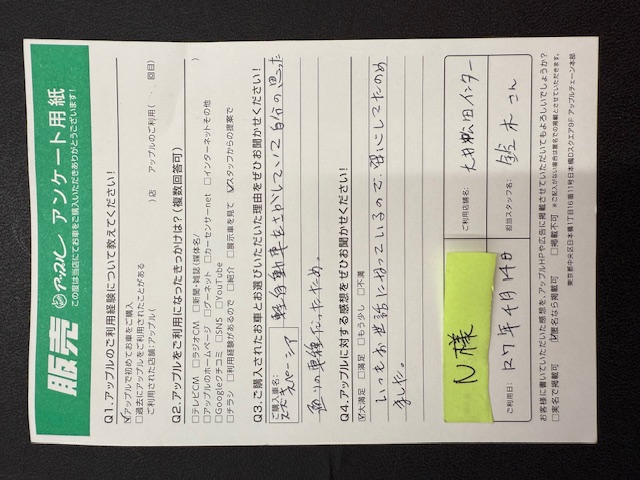 販売 アップル アンケート用紙
この度は当店にてお車をご購入いただきありがとうございます!
Q1.アップルのご利用経験について教えてください!
☑アップルで初めてお車をご購入
□過去にアップルをご利用されたことがある
ご利用された店舗:アップル( )店 アップルのご利用( 回目)
Q2.アップルをご利用になったきっかけは?(複数回答可)
□テレビCM □ラジオCM □新聞・雑誌(媒体名/ )
□アップルのホームページ □グーネット □カーセンサーnet □インターネットその他
□Googleクチコミ □SNS □YouTube
□チラシ □利用経験があるので □紹介 □展示車を見て ☑スタッフからの提案で
Q3.ご購入されたお車とお選びいただいた理由をぜひお聞かせください!
ご購入車名:
スズキ スペーシア
軽自動車をさがしていて自分の思った
通りの車種だったため。
Q4.アップルに対する感想をぜひお聞かせください!
☑大満足 □満足 □もう少し □不満
いつもお世話になっているので、安心してたのめ
ました。
N様
ご利用店舗名:
大井松田インター
ご利用日:
R7年4月14日
担当スタッフ名:
鈴木さん
お客様に書いていただいた感想を、アップルHPや広告に掲載させていただいてもよろしいでしょうか?
□実名で掲載可 ☑匿名なら掲載可 □掲載不可 ※ご記入がない場合は匿名での掲載とさせていただきます。
東京都中央区日本橋1丁目16番11号日本橋Dスクエア9F アップルチェーン本部